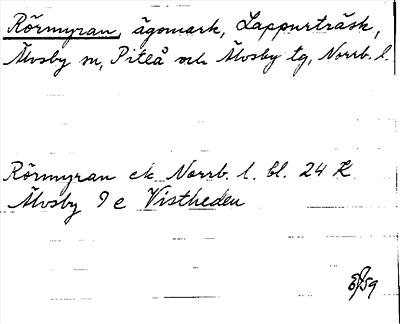 Rörmyran, ägomark, Lappurträsk,
Älvsby sn, Piteå och Älvsby tg, Norrb. l.
Rörmyran ek Norrb. l. bl. 24 K
Älvsby 9 e Vistheden
59